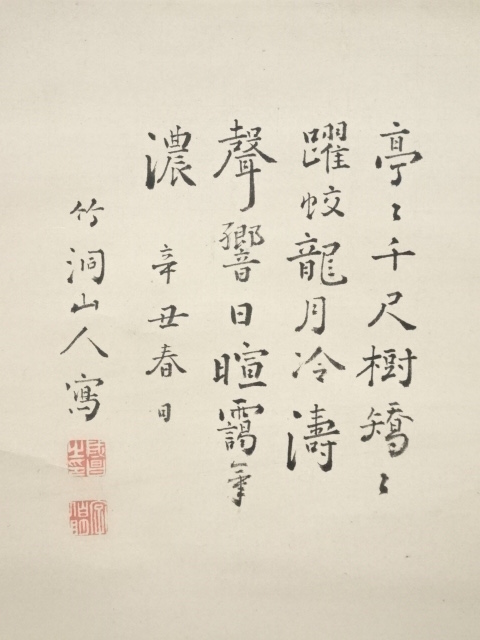 亭〻千尺樹矯〻
躍蛟龍月冷濤
聲響日暄靄氣
濃 辛丑春日
竹洞山人寫